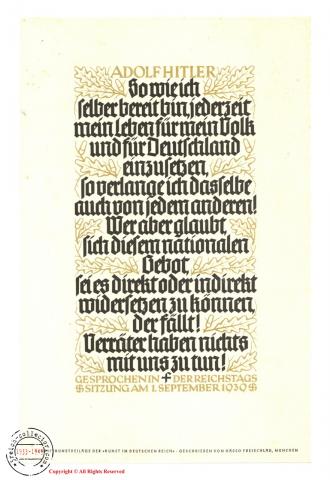 ADOLF HITLER
So wie ich
selber bereit bin, jederzeit
mein Leben für mein Volk
und für Deutschland
einzusetzen,
so verlange ich dasselbe
auch von jedem anderen!
Wer aber glaubt,
sich diesem nationalen
Gebot,
sei es direkt oder indirekt
widersetzen zu können,
der fällt!
Verräter haben nichts
mit uns zu tun!
GESPROCHEN IN DER REICHSTAGS
SITZUNG AM 1. SEPTEMBER 1939
KUNSTBEILAGE DER »KUNST IM DEUTSCHEN REICH« · GESCHRIEBEN VON HASSO FREISCHLAD, MÜNCHEN
Copyright © All Rights Reserved